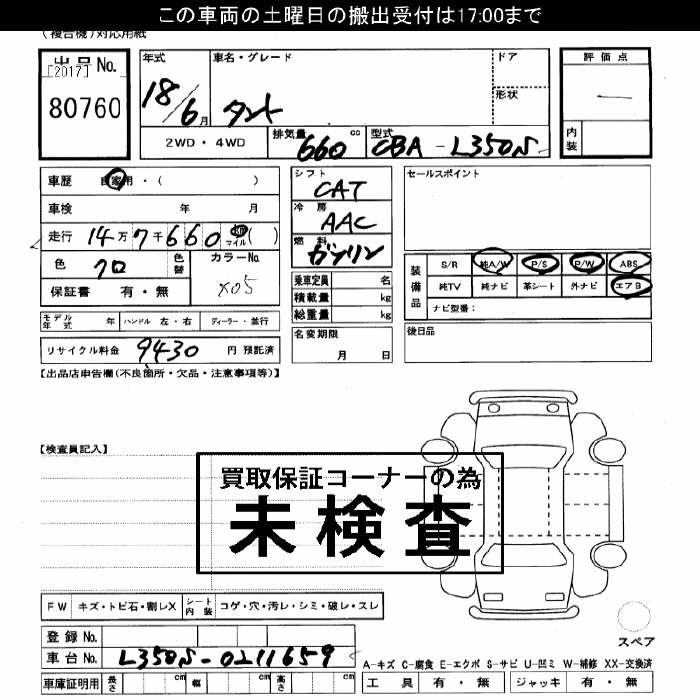 この車両の土曜日の搬出受付は17:00まで
(複合機)対応用紙
出品No. [2017] 80760
年式 18/6月
車名・グレード タント
ドア
形状
評価点 ー
内装
2WD・4WD
排気量 660 cc
型式 CBA-L350S
車歴 自家用・( )
車検 年 月
走行 14万7千660 km マイル ( )
色 クロ 色替
カラーNo. X05
保証書 有・無
シフト CAT
冷房 AAC
燃料 ガソリン
乗車定員 名
積載量 kg
総重量 kg
セールスポイント
装備品 S/R 純A/W P/S P/W ABS
純TV 純ナビ 革シート 外ナビ エアB
ナビ型番:
モデル年式 年 ハンドル 左・右 ディーラー・並行
名変期限 月 日
後日品
リサイクル料金 9430 円 預託済
【出品店申告欄(不良箇所・欠品・注意事項等)】
【検査員記入】
買取保証コーナーの為
未検査
FW キズ・トビ石・割レX シート内装 コゲ・穴・汚レ・シミ・破レ・スレ
スペア
登録No.
車台No. L350S-0211659
A-キズ C-腐食 E-エクボ S-サビ U-凹ミ W-補修 XX-交換済
車庫証明用 長さ cm 幅 cm 高さ cm
工具 有・無 ジャッキ 有・無